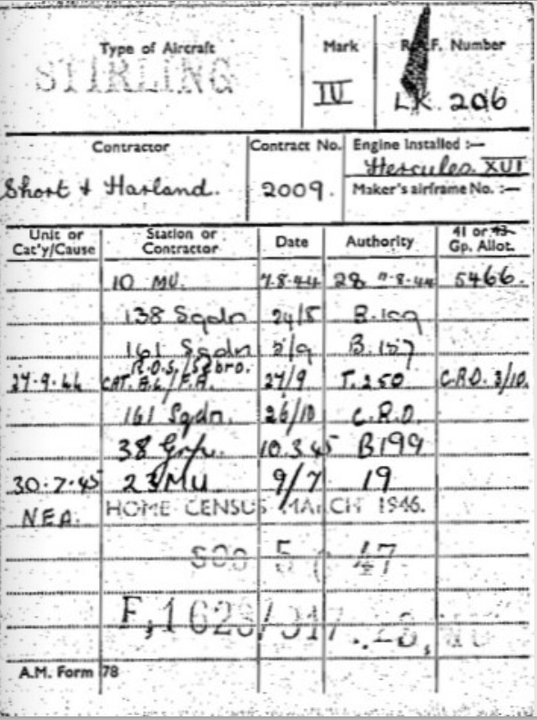 Type of Aircraft Mark R.A.F. Number
STIRLING IV LK. 206
Contractor Contract No. Engine Installed :—
Hercules. XVI
Short & Harland. 2009. Maker's airframe No. :—
Unit or Cat'y/Cause Station or Contractor Date Authority 41 or 43 Gp. Allot.
10 MU. 7.8.44 28 7-8-44 5466.
138 Sqdn 24/8 B.159
161 Sqdn 5/9 B.157
R.O.S./Sebro.
27.9.44 CAT. Ac/F.A. 27/9 T.250 C.R.D. 3/10.
161 Sqdn. 26/10 C.R.D.
38 Grp. 10.3.45 B199
30.7.45 23 MU 9/7 19
NEA. HOME CENSUS MARCH 1946.
SOS 5 47
A.M. Form 78